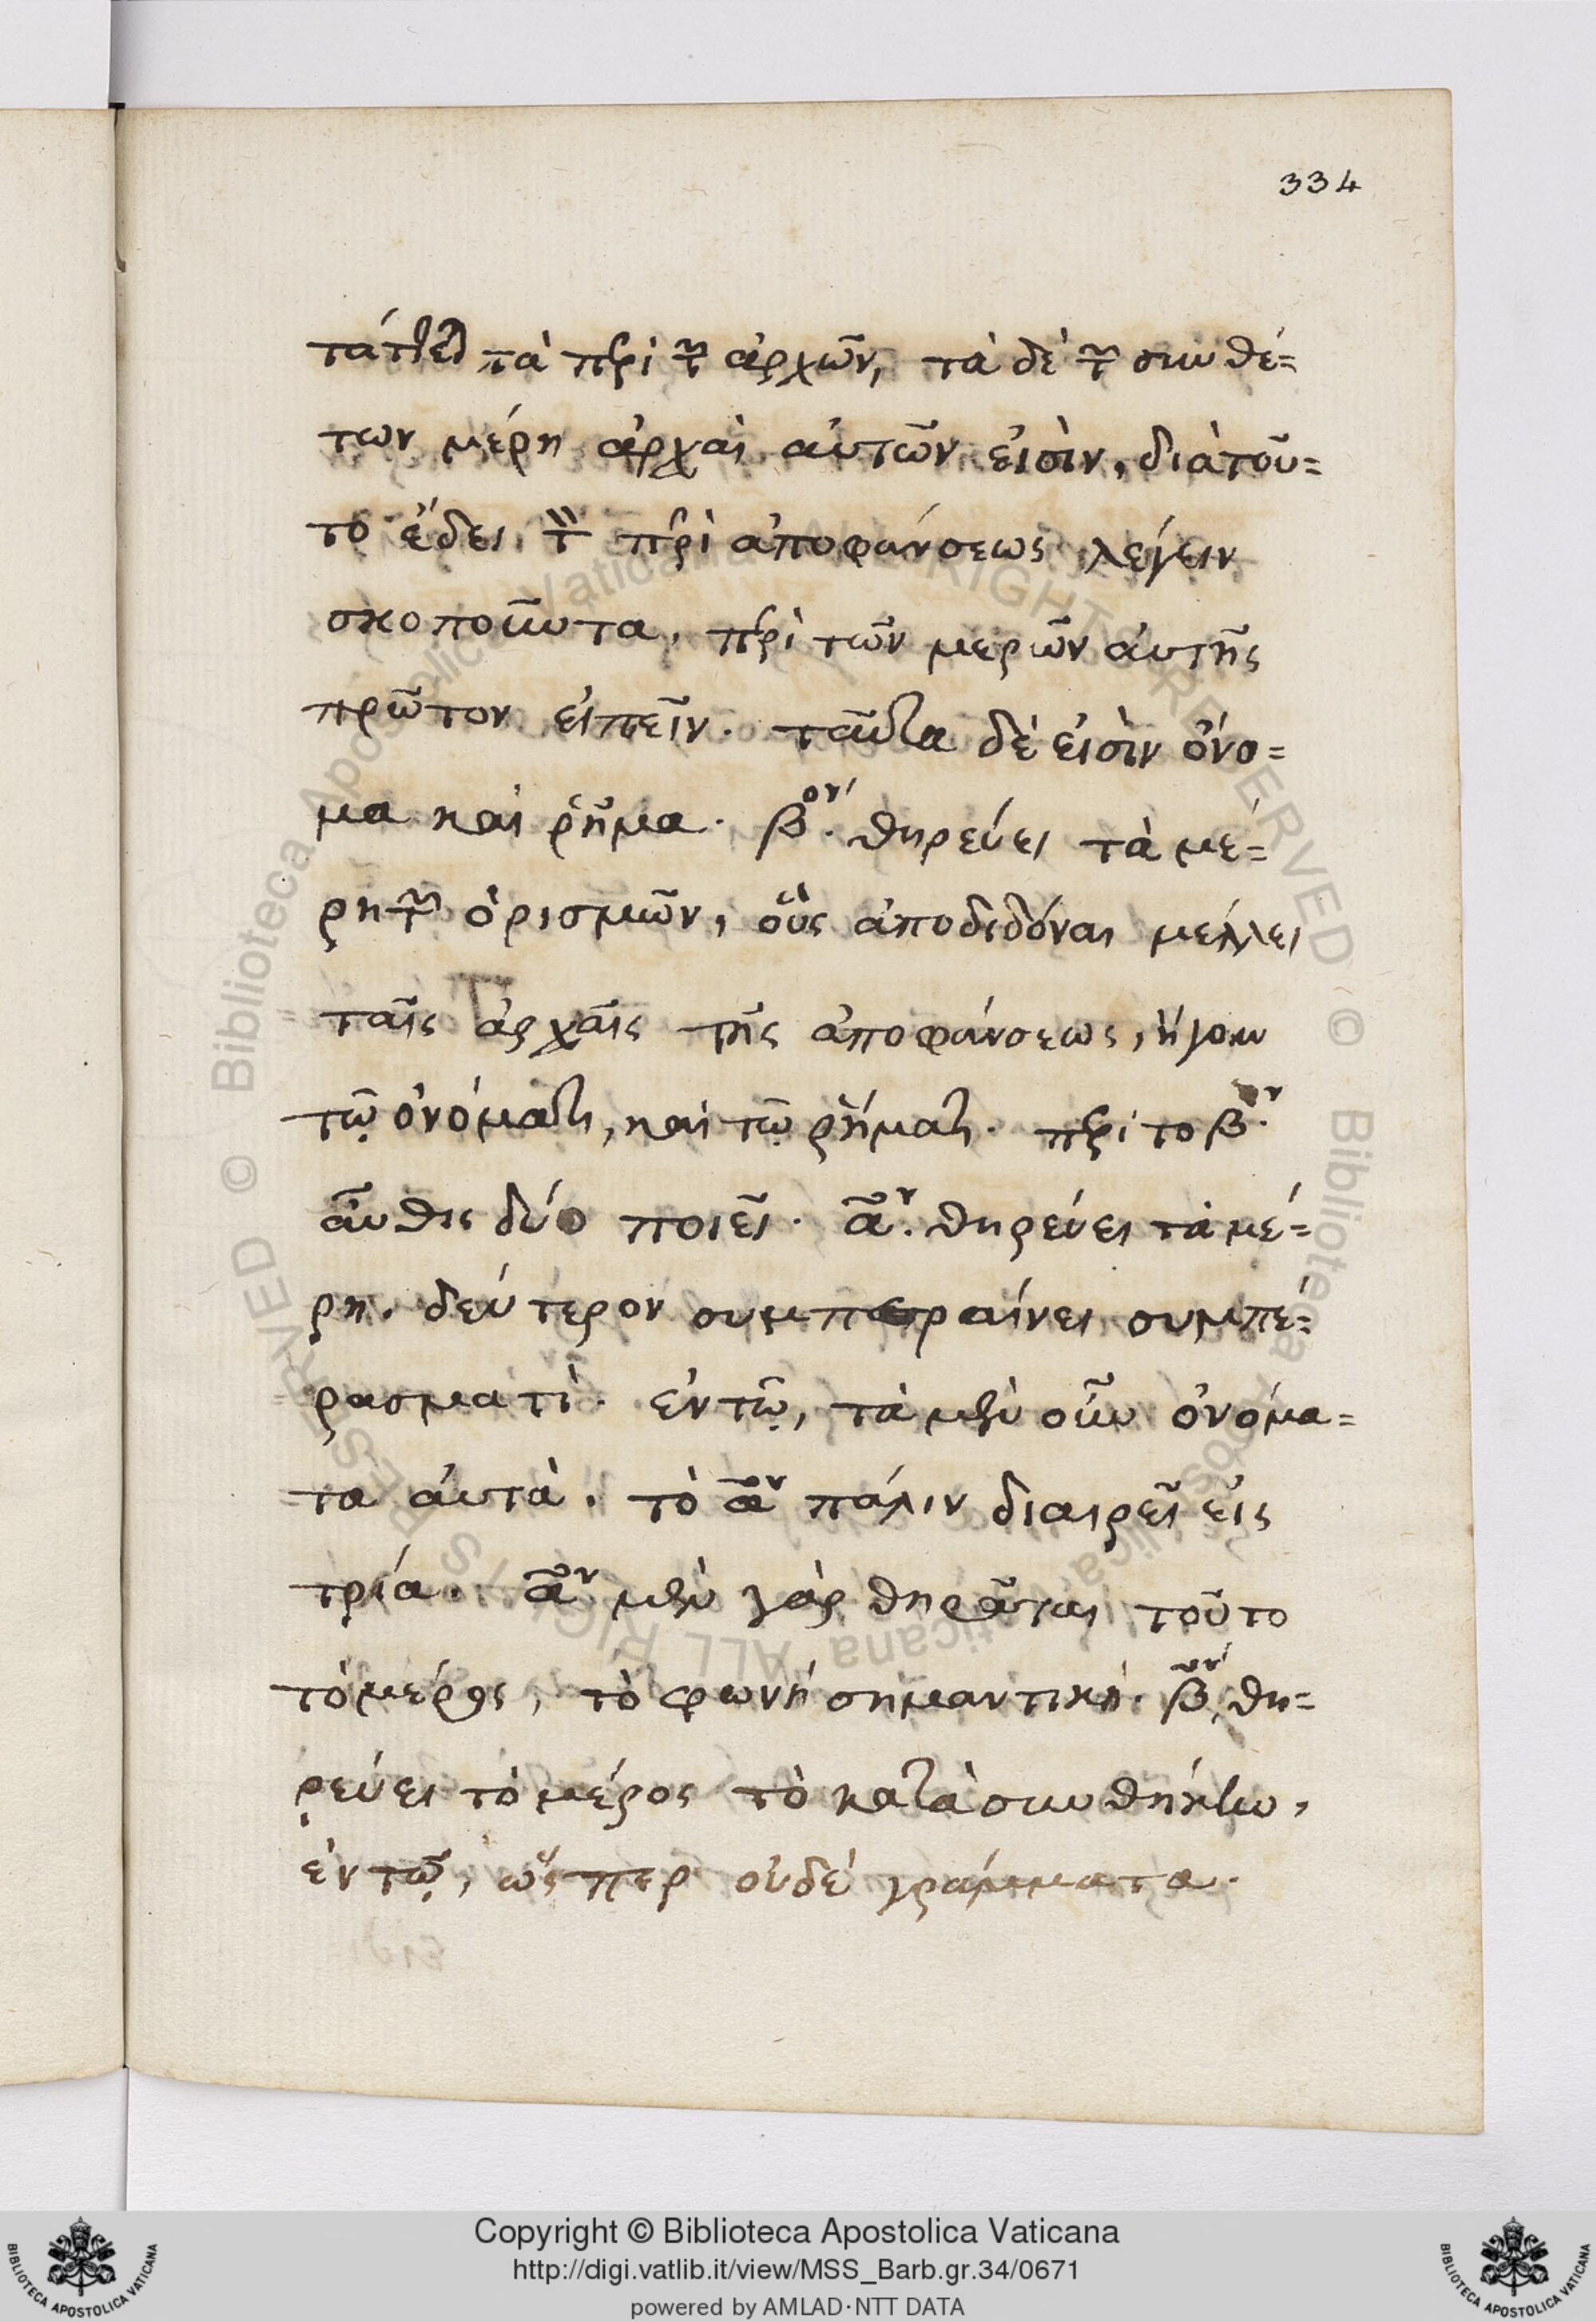 334
τὰ περὶ τῶν ἀρχῶν, τὰ δὲ τῶν συνθέ=
των μέρη ἀρχαὶ αὐτῶν εἰσὶν, διὰτοῦ=
το ἔδει τὸν περὶ ἀποφάνσεως λέγειν
σκοποῦντα, περὶ τῶν μερῶν αὐτῆς
πρῶτον εἰπεῖν. ταῦτα δὲ εἰσὶν ὄνο=
μα καὶ ῥῆμα. βον. θηρεύει τὰ μέ=
ρη τῶν ὁρισμῶν, οὓς ἀποδιδόναι μέλλει
ταῖς ἀρχαῖς τῆς ἀποφάνσεως, ἤγουν
τῷ ὀνόματι, καὶ τῷ ῥήματι. περὶ το βον.
αὖθις δύο ποιεῖ. αον. θηρεύει τὰ μέ=
ρη. δεύτερον συμπεραίνει συμπέ=
ρασματὶ. ἐν τῷ, τὰ μὲν οὖν ὀνόμα=
τα αὐτὰ. τὸ αον πάλιν διαιρεῖ εἰς
τρία. αον μὲν γὰρ θηρᾶται τοῦτο
τὸ μέρος, τὸ φωνή σημαντική. βον, θη=
ρεύει τὸ μέρος τὸ κατὰ συνθήκην,
ἐν τῷ, ὥςπερ οὐδὲ γράμματα.
Copyright © Biblioteca Apostolica Vaticana
http://digi.vatlib.it/view/MSS_Barb.gr.34/0671
powered by AMLAD·NTT DATA
BIBLIOTECA APOSTOLICA VATICANA
BIBLIOTECA APOSTOLICA VATICANA